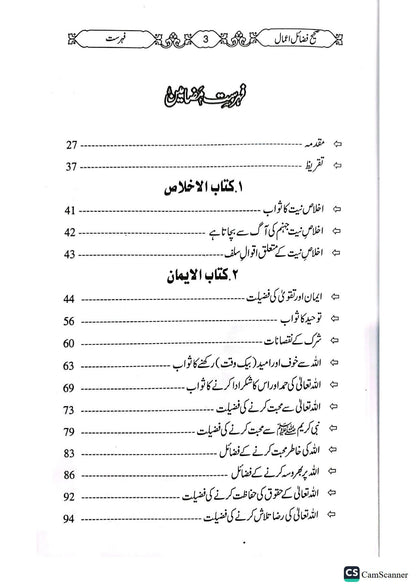 صحیح فضائل اعمال 3 فہرست
فہرست مضامین
⇦ مقدمہ ------------ 27
⇦ تقریظ ------------ 37
۱.کتاب الاخلاص
⇦ اخلاص نیت کا ثواب ------------ 41
⇦ اخلاصِ نیت جہنم کی آگ سے بچاتا ہے ------------ 42
⇦ اخلاصِ نیت کے متعلق اقوال سلف ------------ 43
۲.کتاب الایمان
⇦ ایمان اور تقویٰ کی فضیلت ------------ 44
⇦ توحید کا ثواب ------------ 56
⇦ شرک کے نقصانات ------------ 60
⇦ اللہ سے خوف اور امید (بیک وقت) رکھنے کا ثواب ------------ 63
⇦ اللہ تعالیٰ کی حمد اور اس کا شکر ادا کرنے کا ثواب ------------ 69
⇦ اللہ تعالیٰ سے محبت کرنے کی فضیلت ------------ 73
⇦ نبی کریم ﷺ سے محبت کرنے کی فضیلت ------------ 79
⇦ اللہ کی خاطر محبت کرنے کے فضائل ------------ 83
⇦ اللہ پر بھروسہ کرنے کے فضائل ------------ 86
⇦ اللہ تعالیٰ کے حقوق کی حفاظت کرنے کی فضیلت ------------ 92
⇦ اللہ تعالیٰ کی رضا تلاش کرنے کی فضیلت ------------ 94
CS CamScanner